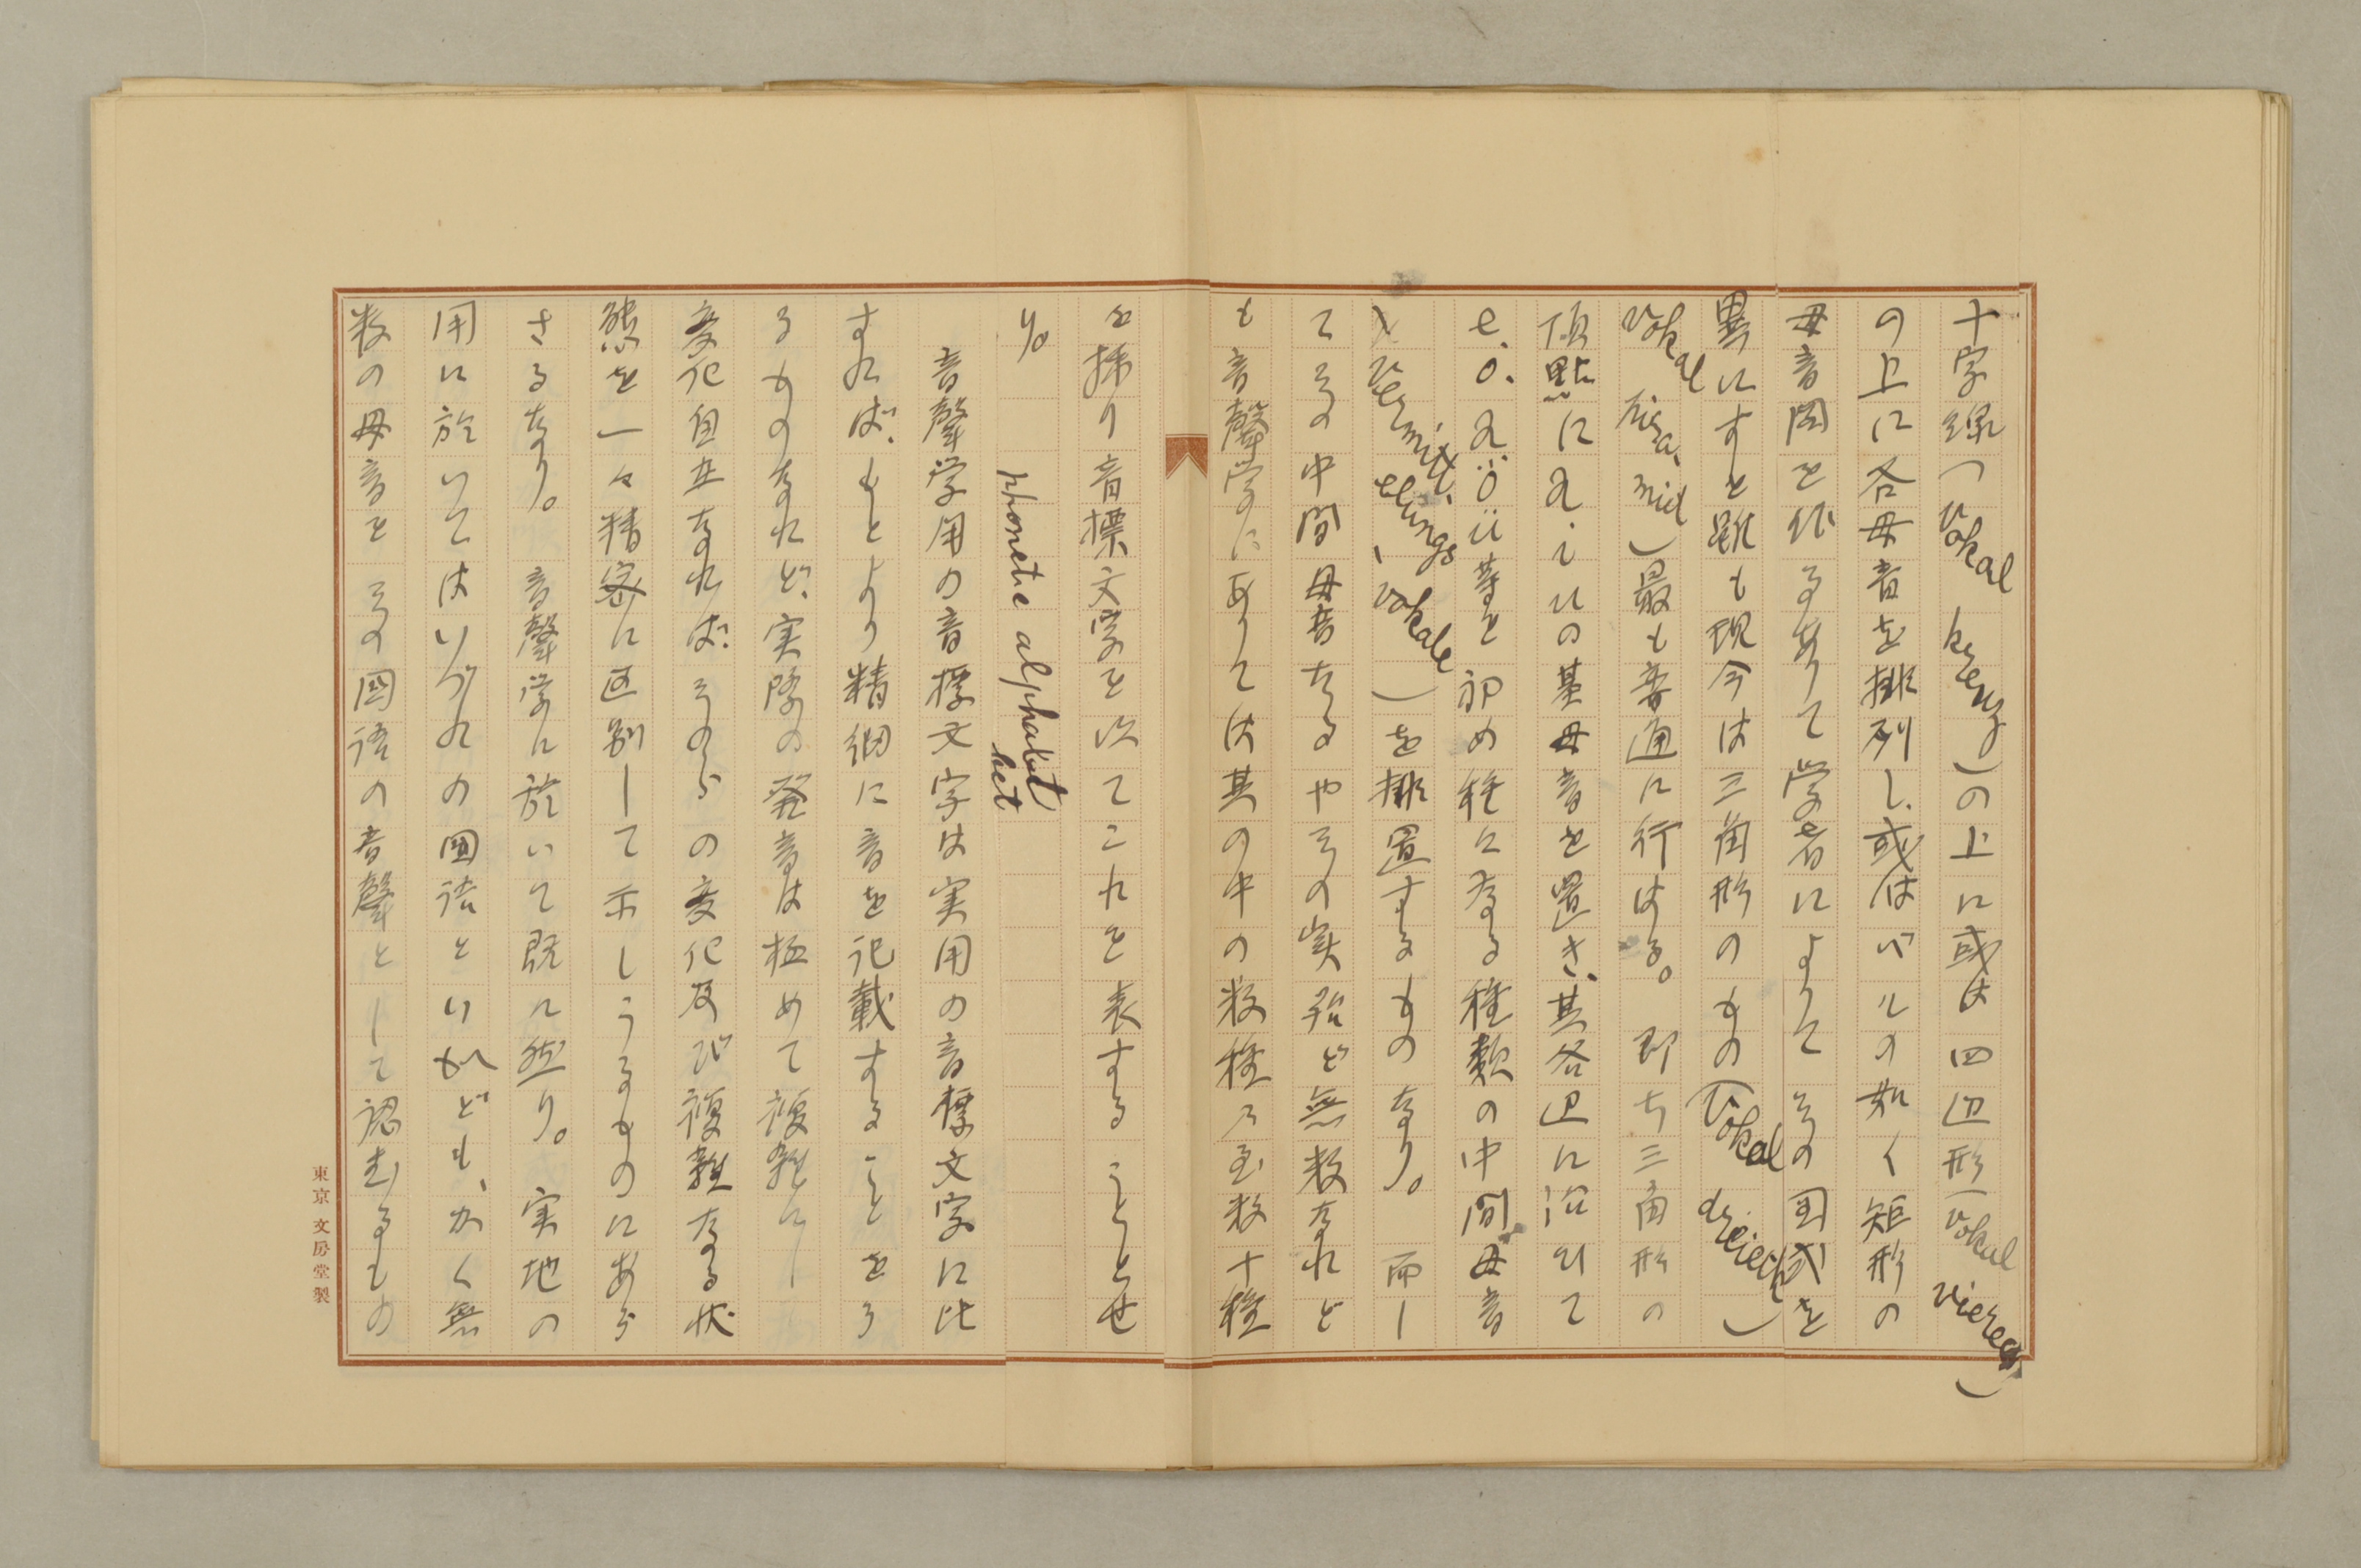 十字線(Vokal kreuz)の上に或は四辺形(Vokal viereck)
の上に各母音を排列し、或はベルの如く矩形の
母音図を作るありて学者によりてその図式を
異にすと雖も現今は三角形のもの(Vokal dreieck)
Vokal mid)最も普通に行はる。即ち三角形の
頂點にa.i.uの基母音を置き、其各辺に沿ひて
e.o.äöü等を初め種々なる種類の中間母音
(Vermittelungs vokale)を排置するものなり。而し
てその中間母音たるやその実殆ど無数なれど
も音聲学に ありては其の中の数種乃至数十種
を採り音標文字を以てこれを表することとせ
り。 phonetic alphabet bet
音聲学用の音標文字は実用の音標文字に比
すれば、もとより精細に音を記載することをう
るものなれど、実際の発音は極めて複雑にし
変化自在なれば、そのらの変化及び複雑なる状
態を一々精密に区別して示しうるものにあら
ざるなり。 音聲学に於いて既に然り。 実地の
用に於いてはいづれの国語といへども、かく無
数の母音をその国語の音聲として認むるもの
東京 文房堂製